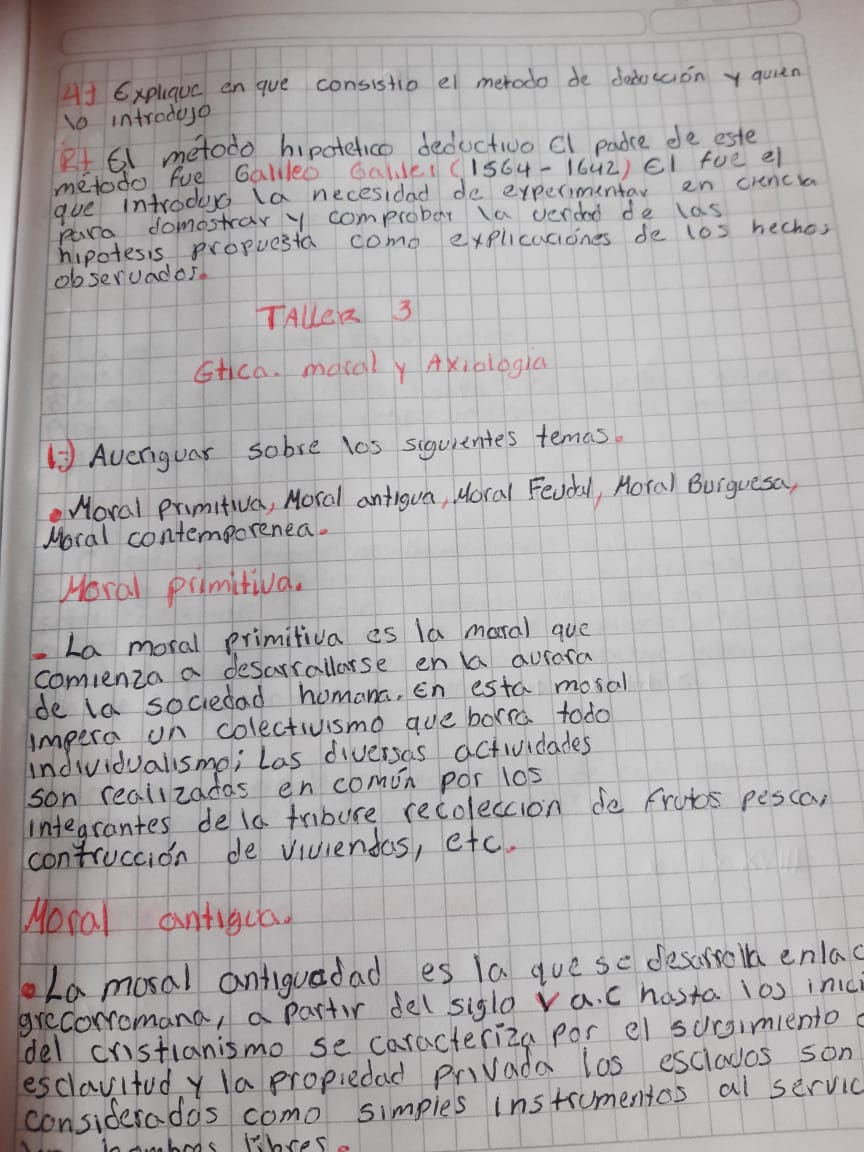 4) Explique en que consistio el metodo de deducción y quien
lo introdujo
R+ El método hipotetico deductivo El padre de este
método fue Galileo Galilei (1564-1642) El fue el
que introdujo la necesidad de experimentar en ciencia
para domostrar y comprobar la verdad de las
hipotesis propuesta como explicaciónes de los hechos
observados.
TALLER 3
Etica. moral y Axiologia
1:) Averiguar sobre los siguientes temas.
• Moral primitiva, Moral antigua, Moral Feudal, Moral Burguesa,
Moral contemporenea.
Moral primitiva.
- La moral primitiva es la moral que
comienza a desarrallarse en la aurora
de la sociedad humana. En esta moral
impera un colectivismo que borra todo
individualismo; Las diversas actividades
son realizadas en común por los
integrantes de la tribure recolección de frutos pesca,
contrucción de viviendas, etc.
Moral antigua.
• La moral antiguadad es la que se desarrolla en la c
grecorromana, a partir del siglo V a.c hasta los inici
del cristianismo se caracteriza por el surgimiento
esclavitud y la propiedad privada los esclavos son
considerados como simples instrumentos al servic
hombres libres.